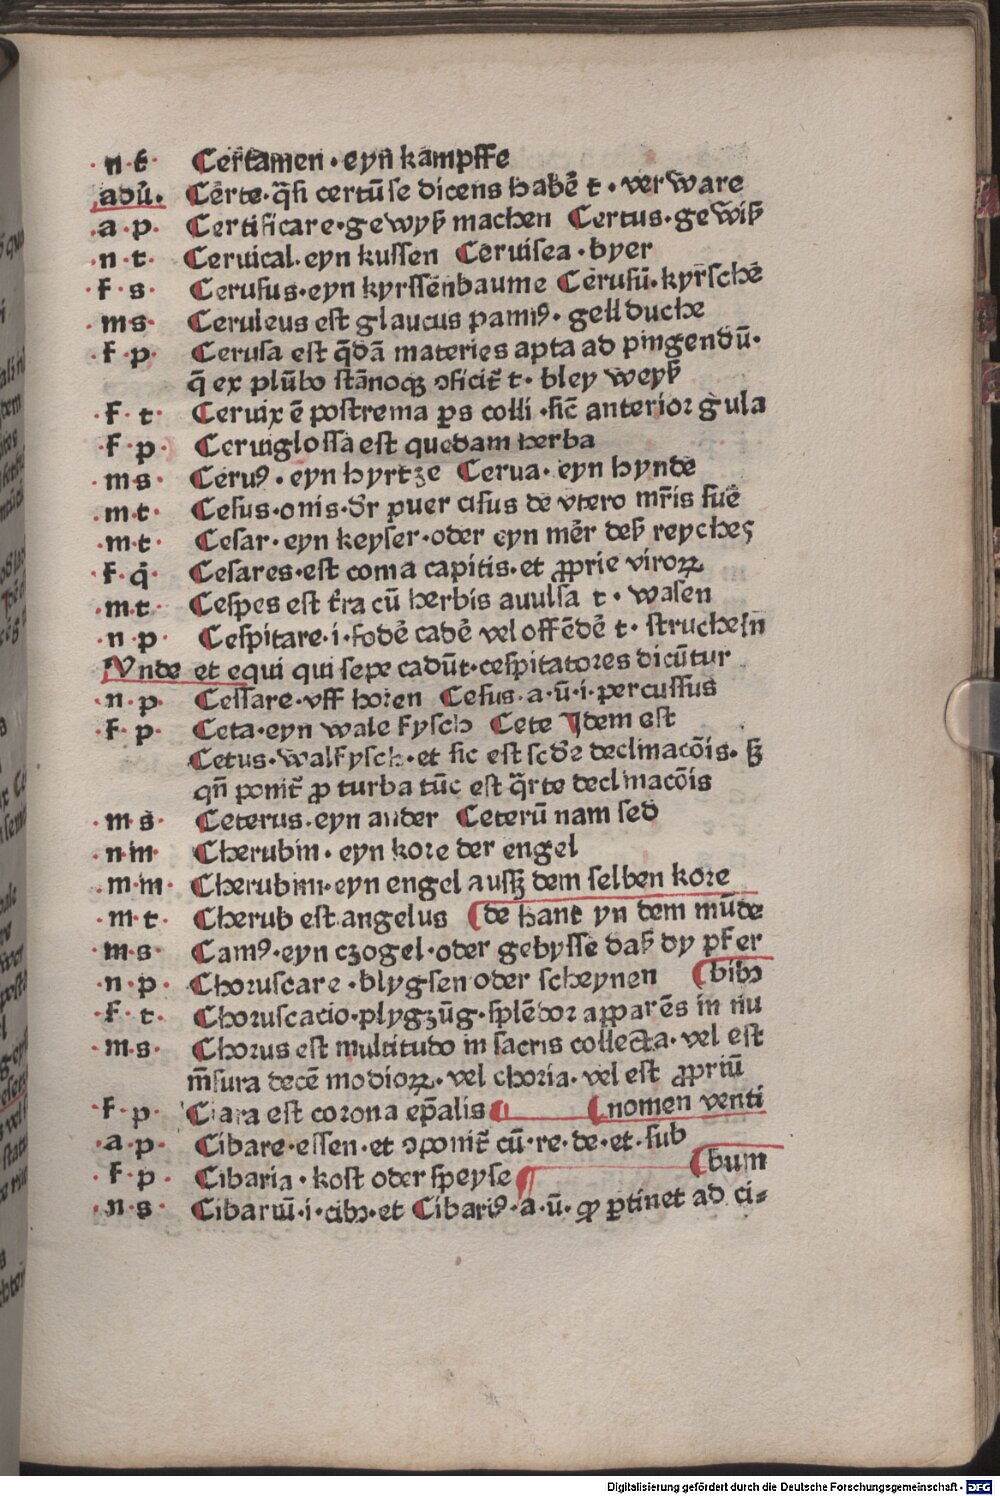 ·n·t· Certamen·eyn kampffe
adū. Certe·q̄si certū se dicens habē t·verware
·a·p· Certificare·gewyß machen Certus·gewiß
·n·t· Ceruical·eyn kussen Ceruisea·byer
·f·s· Cerusus·eyn kyrssēnbaume Cerusū·kyrschē
·m s· Ceruleus est glaucus panīꝰ·gell duche
·f·p· Cerusa est q̄dā materies apta ad pingendū·
q̄ ex plūbo stānoqꝫ ꝯficit̄ t·bley weyß
·f·t· Ceruix ē postrema ꝑs colli·sic̄ anterior gula
·f·p· Ceruiglossa est quedam herba
·m s· Ceruꝰ·eyn hyrtze Cerua·eyn hynde
·m·t· Cesus·onis·dr̄ puer cisus de vtero mr̄is sue
·m·t· Cesar·eyn keyser·oder eyn mer̄ deß reyches
·f·q̄· Cesares·est coma capitis·et ꝓprie viroꝝ
·m·t· Cespes est tr̄a cū herbis auulsa t·wasen
·n·p· Cespitare·i·fodē cadē vel offēdē t·strucheln
Vnde et equi qui sepe cadūt·cespitatores dicūtur
·n·p· Cessare·vff horen Cesus·a·ū·i·percussus
·f·p· Ceta·eyn wale fysch Cete Idem est
Cetus·walfysch·et sic est scd̄e declinacōis·sꝫ
qn̄ ponit̄ ꝓ turba tūc est q̄rte declinacōis
·m s· Ceterus·eyn ander Ceterū nam sed
·n·m Cherubin·eyn kore der engel
·m·m· Cherubim·eyn engel aussz dem selben kore
·m·t· Cherub est angelus de hant yn dem mūde
·m·s· Camꝰ·eyn czogel·oder gebysse daß dy pfer
·n·p· Choruscare·blygsen oder scheynen bibꝫ
·f·t· Choruscacio·plygzūg·splēdor apparēs in nu
·m·s· Chorus est multitudo in sacris collecta·vel est
m̄sura decē modioꝝ·vel choria·vel est ꝓpriū
·f·p· Ciara est corona ep̄alis nomen venti
·a·p· Cibare·essen·et ꝯponit̄ cū·re·de·et·sub
·f·p· Cibaria·kost oder speyse bum
·n·s· Cibariū·i·cibꝫ·et Cibariꝰ·a·ū·qͦ ꝑtinet ad ci⸗
Digitalisierung gefördert durch die Deutsche Forschungsgemeinschaft - DFG